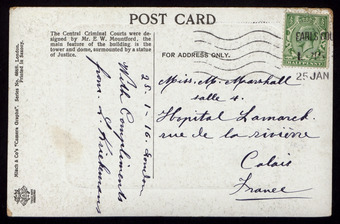 POST CARD
The Central Criminal Courts were de-
signed by Mr. E. W. Mountford. the
main feature of the building is the
tower and dome, surmounted by a statue
of Justice.
FOR ADDRESS ONLY.
EARLS COU
25 JAN
HALFPENNY
Miss. M. Marshall
salle 4.
Hopital Lamarck.
rue de la rivière
Calais
France
25-1-16. London
With Compliments
from
Hitach & Co's "Camera Graphic". Series No. London.
Printed in Saxony.